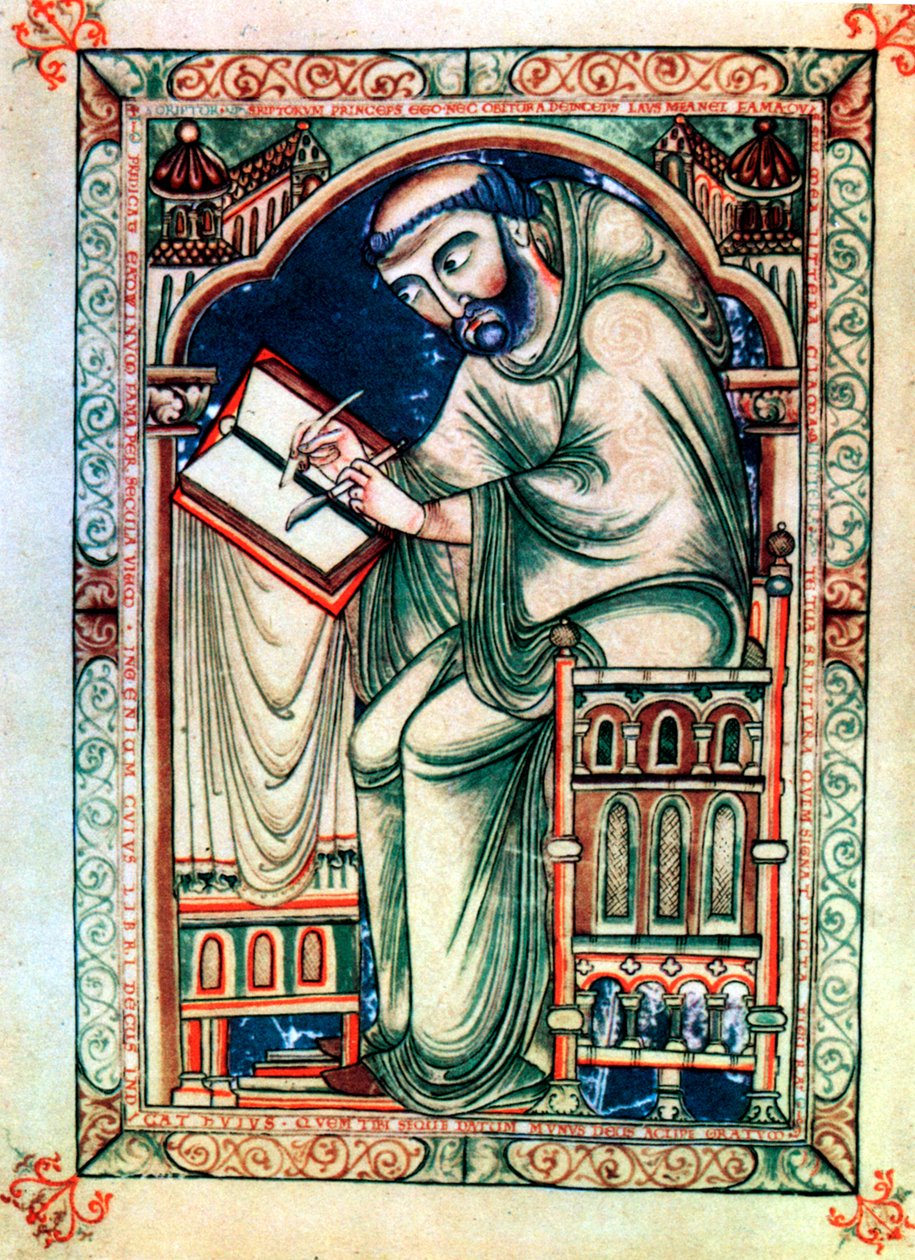 SRIPTORVM PRINCEPS EGO·NEC OBITURA DEINCEPS LAVS MEA NEC FAMA·QVI
SIM MEA LITTERA CLAMA TE TVA SRIPTVRA QVEM SIGNAT PICTA FIGVRA
PREDICAT EADWINVM FAMA PER SECVLA VIVVM · INGENIVM CVIVS LIBRI DECVS INDI
CAT HVIVS · QVEM TIBI SEQVE DATVM MVNVS DEVS ACCIPE GRATVM